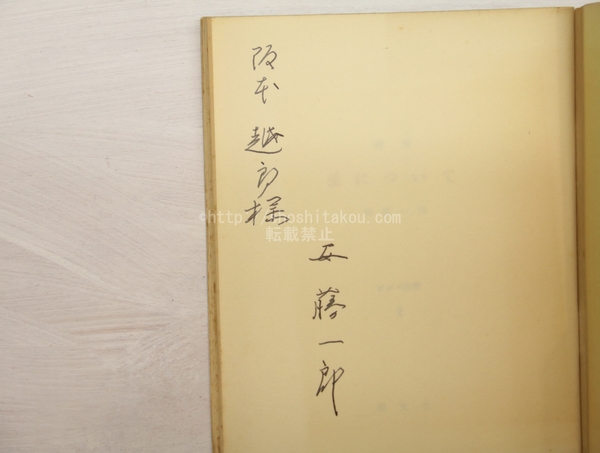 阪本越郎様
安藤一郎
©http://yoshitakou.com
転載禁止